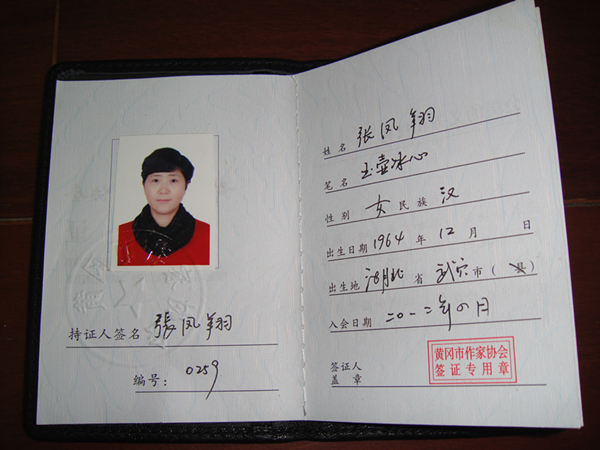 持证人签名 張凤翔
编号: 0259
姓名 张凤翔
笔名 玉壶冰心
性别 女 民族 汉
出生日期 1964 年 12 月 日
出生地 湖北 省 武穴 市 (县)
入会日期 二〇一二年四月
签证人
盖章
黄冈市作家协会
签证专用章